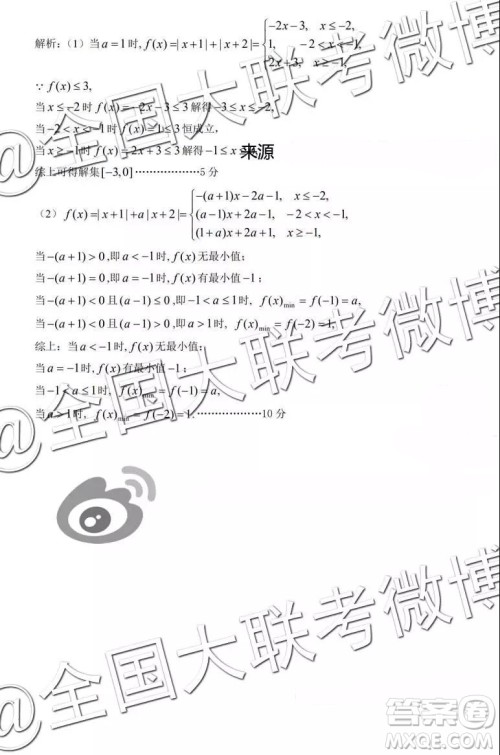 解析：(1) 当 a = 1 时, f(x)=| x+1|+| x+2|= { -2x-3, x≤-2,
1, -2<x<-1,
2x+3, x≥-1,
∵ f(x)≤3,
当 x≤-2 时 f(x)=-2x-3≤3 解得 -3≤x≤-2,
当 -2<x<-1 时 f(x)≤3 恒成立,
当 x≥-1 时 f(x)=2x+3≤3 解得 -1≤x
来源
综上可得解集[-3,0]··················5 分
(2) f(x)=| x+1|+a| x+2|= { -(a+1)x-2a-1, x≤-2,
(a-1)x+2a-1, -2<x<-1,
(1+a)x+2a+1, x≥-1,
当 -(a+1)>0,即 a<-1 时, f(x) 无最小值；
当 -(a+1)=0,即 a=-1 时, f(x) 有最小值 -1；
当 -(a+1)<0 且(a-1)≤0 ,即 -1<a≤1 时, f(x)min = f(-1)=a,
当 -(a+1)<0 且(a-1)>0 ,即 a>1 时, f(x)min = f(-2)=1,
综上：当 a<-1 时, f(x) 无最小值；
当 a=-1 时, f(x) 有最小值 -1；
当 -1<a≤1 时, f(x)min = f(-1)=a,
当 a>1 时, f(x)min = f(-2)=1,··················10 分
@全国大联考微博
@全国大联考微博
@全国大联考微博
答案圈
MXQE.COM